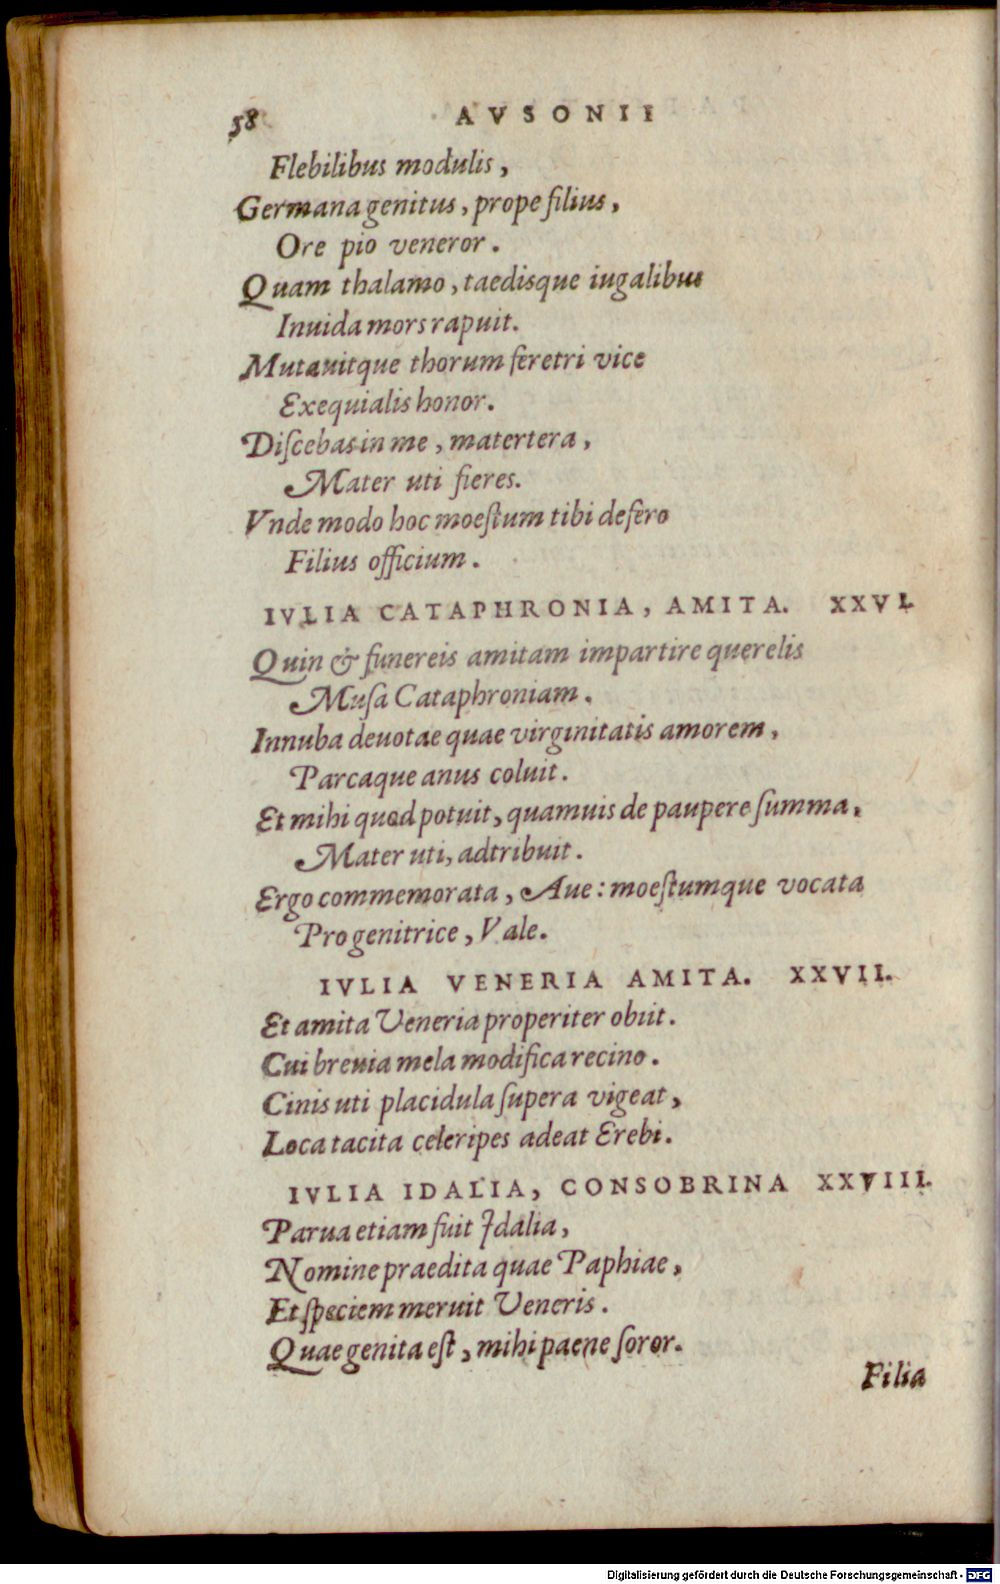 58 AVSONII
Flebilibus modulis,
Germana genitus, prope filius,
Ore pio veneror.
Quam thalamo, taedisque iugalibus
Inuida mors rapuit.
Mutauitque thorum feretri vice
Exequialis honor.
Diſcebas in me, matertera,
Mater uti fieres.
Vnde modo hoc moeſtum tibi defero
Filius officium.
IVLIA CATAPHRONIA, AMITA. XXVI.
Quin & funereis amitam impartire querelis
Muſa Cataphroniam.
Innuba deuotae quae virginitatis amorem,
Parcaque anus coluit.
Et mihi quod potuit, quamuis de paupere ſumma,
Mater uti, adtribuit.
Ergo commemorata, Aue: moeſtumque vocata
Pro genitrice, Vale.
IVLIA VENERIA AMITA. XXVII.
Et amita Veneria properiter obiit.
Cui breuia mela modifica recino.
Cinis uti placidula ſupera vigeat,
Loca tacita celeripes adeat Erebi.
IVLIA IDALIA, CONSOBRINA XXVIII.
Parua etiam fuit Idalia,
Nomine praedita quae Paphiae,
Et ſpeciem meruit Veneris.
Quae genita eſt, mihi paene ſoror.
Filia
Digitalisierung gefördert durch die Deutsche Forschungsgemeinschaft - DFG